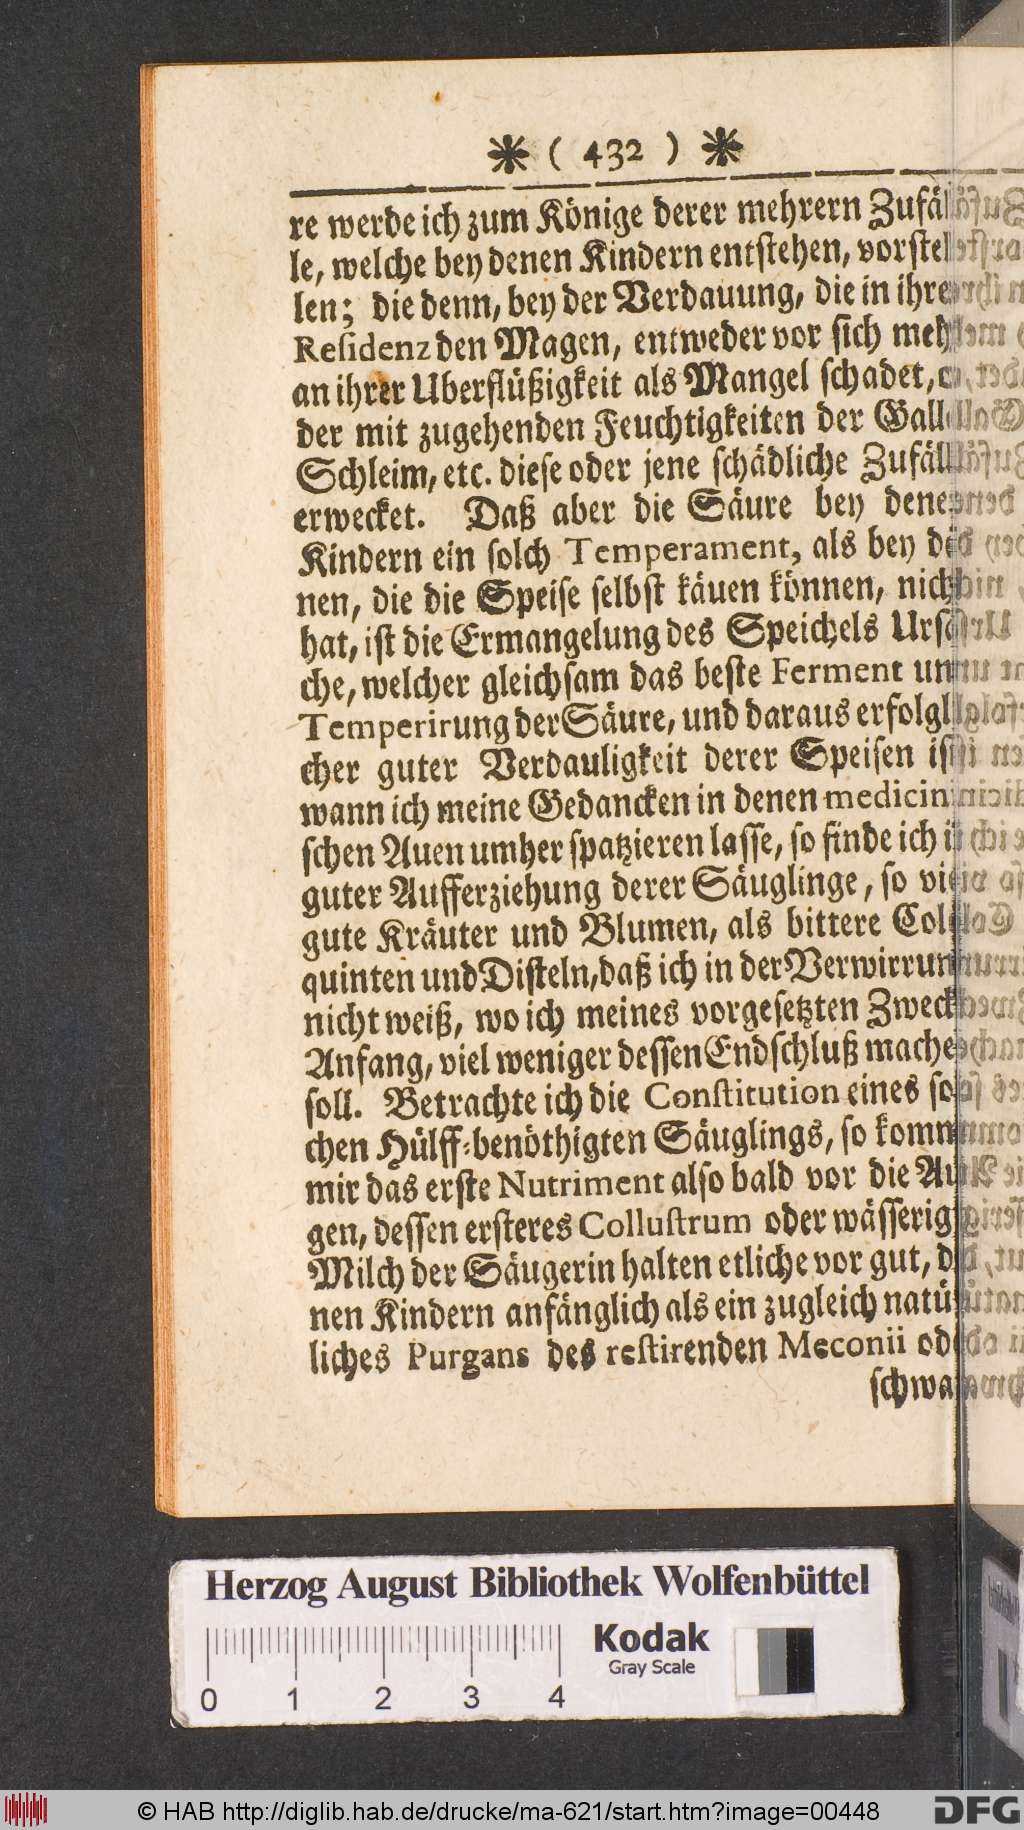 * ( 432 ) *
re werde ich zum Könige derer mehrern Zufäl-
le, welche bey denen Kindern entstehen, vorstel-
len; die denn, bey der Verdauung, die in ihrer
Residenz den Magen, entweder vor sich mehr
an ihrer Uberflüßigkeit als Mangel schadet, o-
der mit zugehenden Feuchtigkeiten der Galle
Schleim, etc. diese oder jene schädliche Zufälle
erwecket. Daß aber die Säure bey denen
Kindern ein solch Temperament, als bey de-
nen, die die Speise selbst käuen können, nicht
hat, ist die Ermangelung des Speichels Ursa-
che, welcher gleichsam das beste Ferment un
Temperirung der Säure, und daraus erfolgli-
cher guter Verdauligkeit derer Speisen ist
wann ich meine Gedancken in denen medicini-
schen Auen umher spatzieren lasse, so finde ich
guter Aufferziehung derer Säuglinge, so viel
gute Kräuter und Blumen, als bittere Colo-
quinten und Disteln, daß ich in der Verwirrung
nicht weiß, wo ich meines vorgesetzten Zwecks
Anfang, viel weniger dessen Endschluß machen
soll. Betrachte ich die Constitution eines sol-
chen Hülff-benöthigten Säuglings, so kommt
mir das erste Nutriment also bald vor die Au-
gen, dessen ersteres Collustrum oder wässerige
Milch der Säugerin halten etliche vor gut, de-
nen Kindern anfänglich als ein zugleich natür-
liches Purgans des restirenden Meconii oder
schwar-
Herzog August Bibliothek Wolfenbüttel
Kodak
Gray Scale
0 1 2 3 4
© HAB http://diglib.hab.de/drucke/ma-621/start.htm?image=00448
DFG